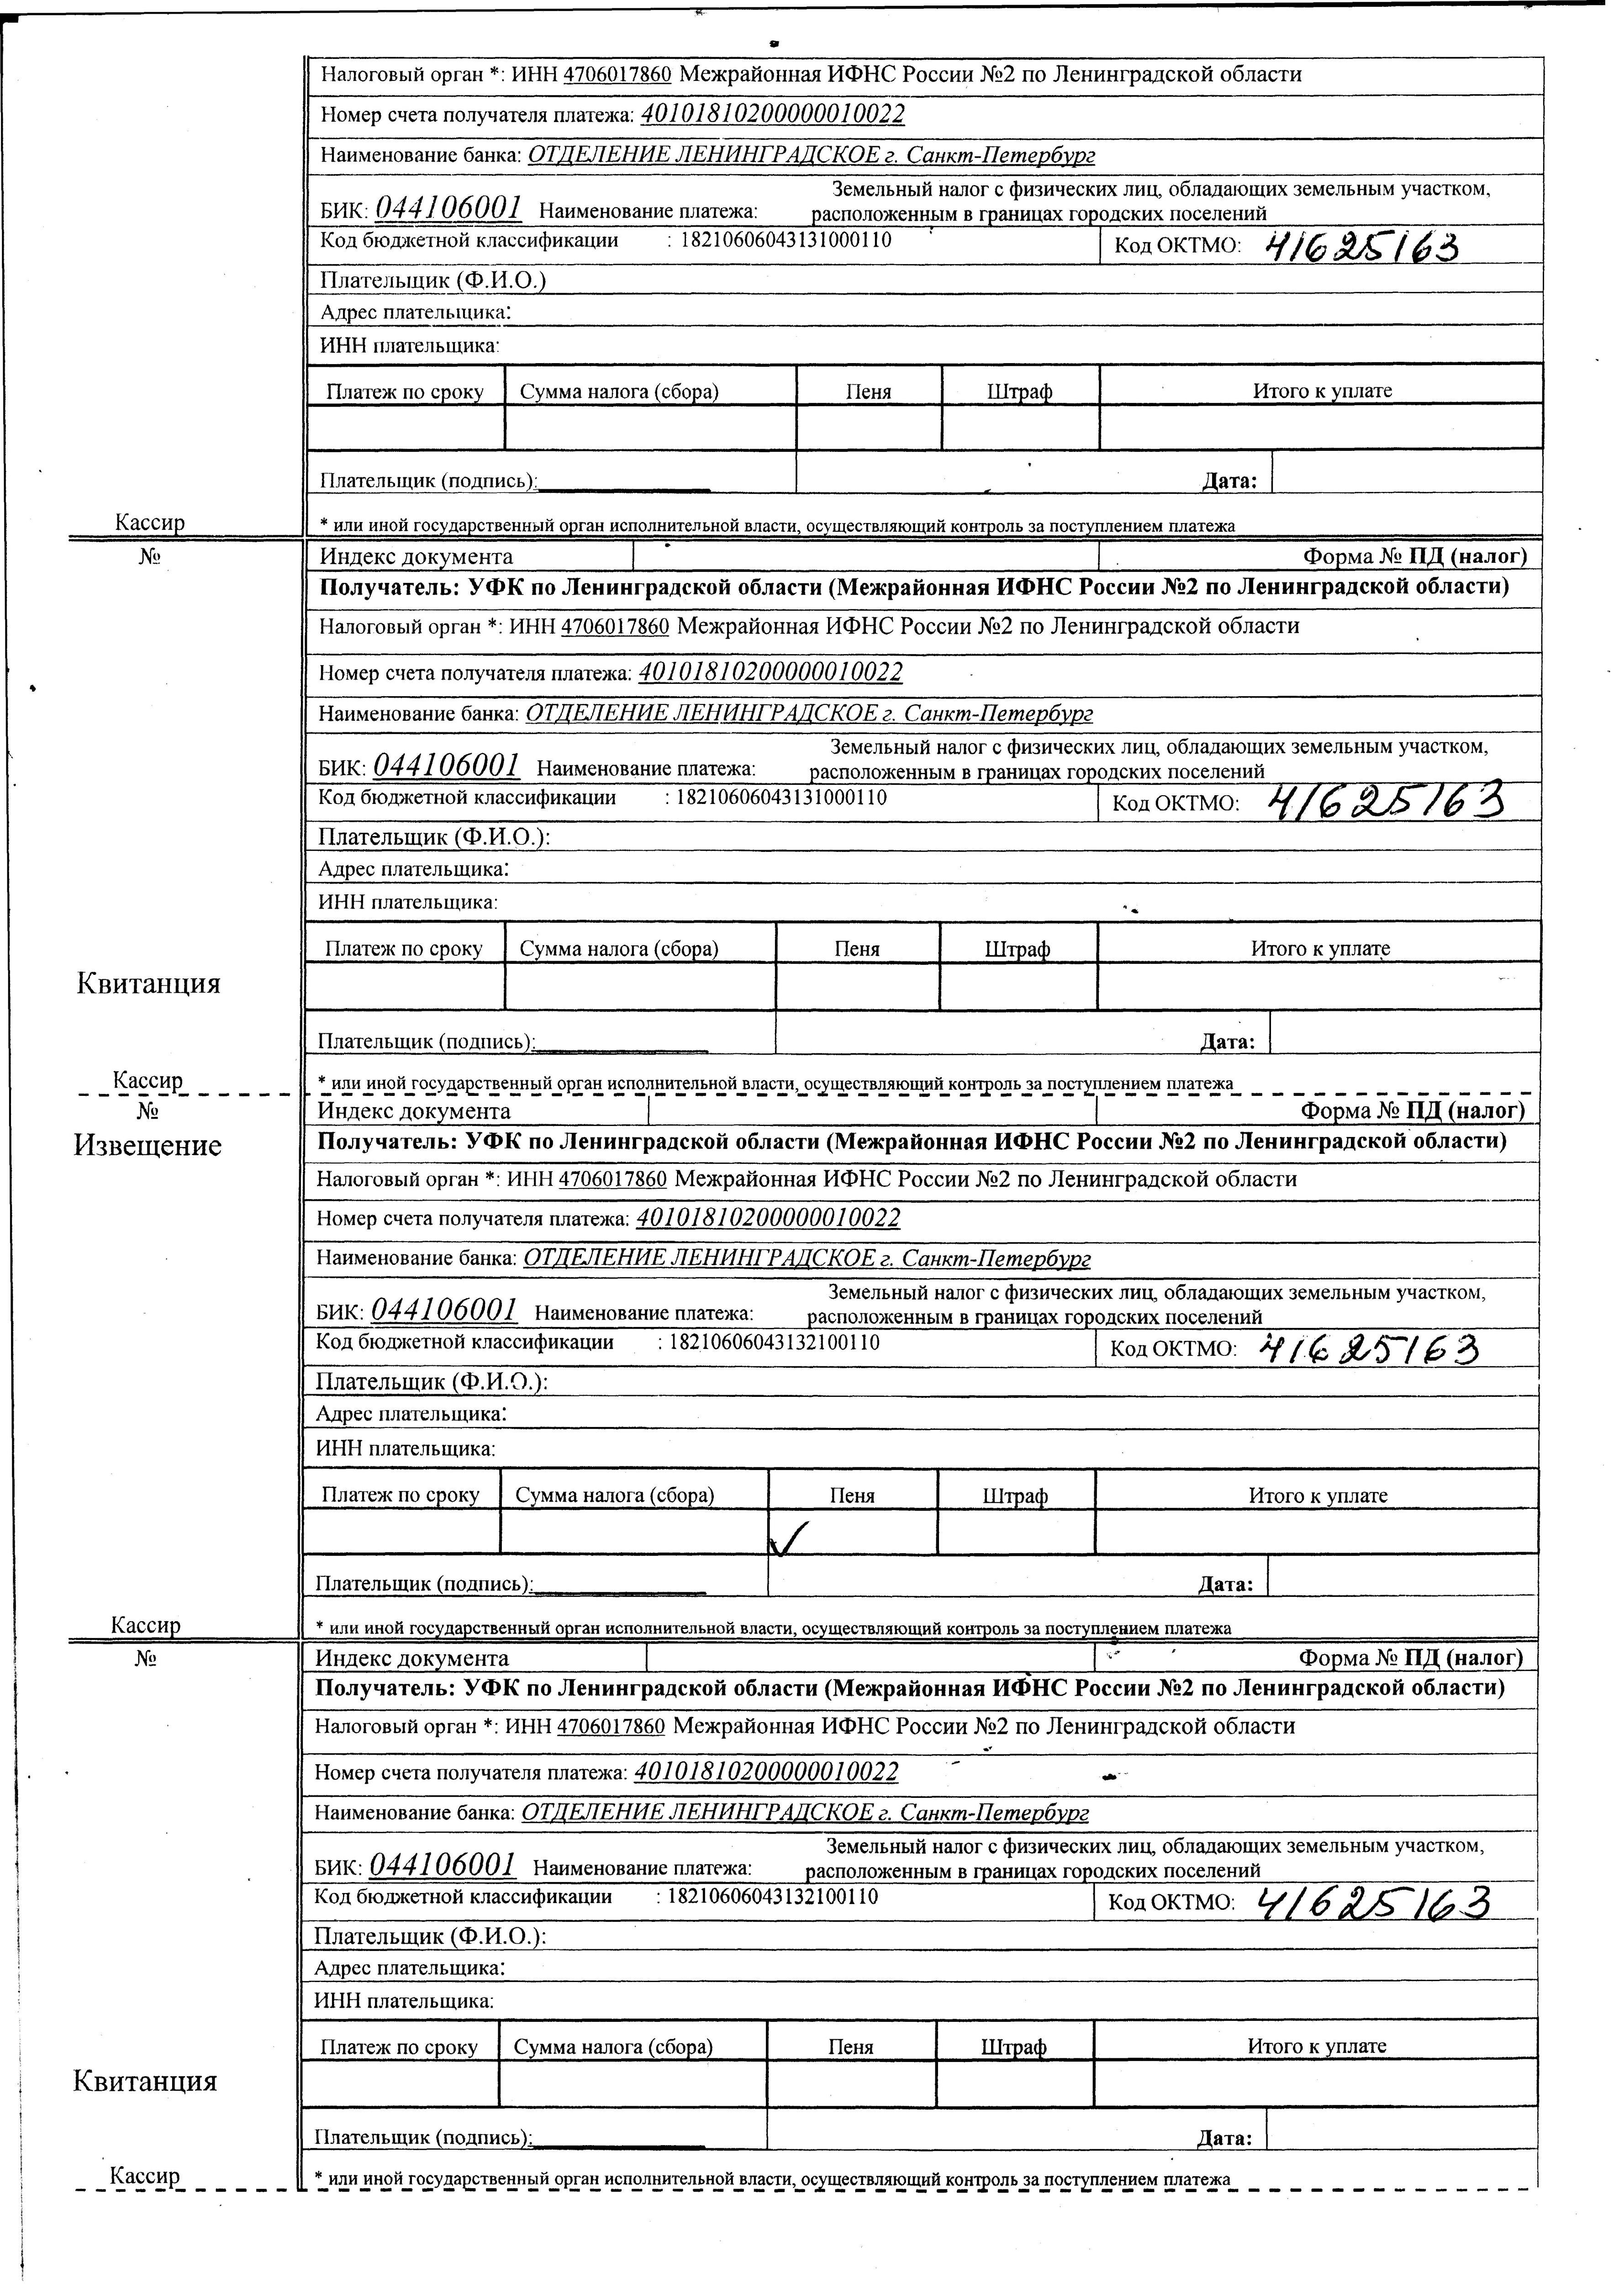 Налоговый орган *: ИНН 4706017860 Межрайонная ИФНС России №2 по Ленинградской области
Номер счета получателя платежа: 40101810200000010022
Наименование банка: ОТДЕЛЕНИЕ ЛЕНИНГРАДСКОЕ г. Санкт-Петербург
Земельный налог с физических лиц, обладающих земельным участком,
БИК: 044106001 Наименование платежа: расположенным в границах городских поселений
Код бюджетной классификации : 18210606043131000110 Код ОКТМО: 41625163
Плательщик (Ф.И.О.)
Адрес плательщика:
ИНН плательщика:
Платеж по сроку Сумма налога (сбора) Пеня Штраф Итого к уплате
Плательщик (подпись): Дата:
Кассир * или иной государственный орган исполнительной власти, осуществляющий контроль за поступлением платежа
№ Индекс документа Форма № ПД (налог)
Получатель: УФК по Ленинградской области (Межрайонная ИФНС России №2 по Ленинградской области)
Налоговый орган *: ИНН 4706017860 Межрайонная ИФНС России №2 по Ленинградской области
Номер счета получателя платежа: 40101810200000010022
Наименование банка: ОТДЕЛЕНИЕ ЛЕНИНГРАДСКОЕ г. Санкт-Петербург
Земельный налог с физических лиц, обладающих земельным участком,
БИК: 044106001 Наименование платежа: расположенным в границах городских поселений
Код бюджетной классификации : 18210606043131000110 Код ОКТМО: 41625163
Плательщик (Ф.И.О.):
Адрес плательщика:
ИНН плательщика:
Платеж по сроку Сумма налога (сбора) Пеня Штраф Итого к уплате
Квитанция
Плательщик (подпись): Дата:
Кассир * или иной государственный орган исполнительной власти, осуществляющий контроль за поступлением платежа
№ Индекс документа Форма № ПД (налог)
Извещение Получатель: УФК по Ленинградской области (Межрайонная ИФНС России №2 по Ленинградской области)
Налоговый орган *: ИНН 4706017860 Межрайонная ИФНС России №2 по Ленинградской области
Номер счета получателя платежа: 40101810200000010022
Наименование банка: ОТДЕЛЕНИЕ ЛЕНИНГРАДСКОЕ г. Санкт-Петербург
Земельный налог с физических лиц, обладающих земельным участком,
БИК: 044106001 Наименование платежа: расположенным в границах городских поселений
Код бюджетной классификации : 18210606043132100110 Код ОКТМО: 41625163
Плательщик (Ф.И.О.):
Адрес плательщика:
ИНН плательщика:
Платеж по сроку Сумма налога (сбора) Пеня Штраф Итого к уплате
✓
Плательщик (подпись): Дата:
Кассир * или иной государственный орган исполнительной власти, осуществляющий контроль за поступлением платежа
№ Индекс документа Форма № ПД (налог)
Получатель: УФК по Ленинградской области (Межрайонная ИФНС России №2 по Ленинградской области)
Налоговый орган *: ИНН 4706017860 Межрайонная ИФНС России №2 по Ленинградской области
Номер счета получателя платежа: 40101810200000010022
Наименование банка: ОТДЕЛЕНИЕ ЛЕНИНГРАДСКОЕ г. Санкт-Петербург
Земельный налог с физических лиц, обладающих земельным участком,
БИК: 044106001 Наименование платежа: расположенным в границах городских поселений
Код бюджетной классификации : 18210606043132100110 Код ОКТМО: 41625163
Плательщик (Ф.И.О.):
Адрес плательщика:
ИНН плательщика:
Платеж по сроку Сумма налога (сбора) Пеня Штраф Итого к уплате
Квитанция
Плательщик (подпись): Дата:
Кассир * или иной государственный орган исполнительной власти, осуществляющий контроль за поступлением платежа